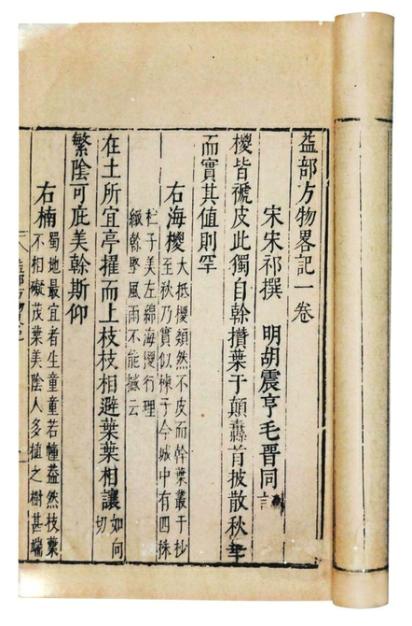 益部方物畧記一卷
宋宋祁撰 明胡震亨毛晋同
椶皆褫皮此獨自榦攢葉于顛纛首披散秋華
而實其值則罕
右海椶 大抵椶類然不皮而幹葉叢于杪
至秋乃實似楝子今城中有四株
杜子美左綿海椶行理
緻榦堅風雨不能撼云
在土所宜亭擢而上枝枝相避葉葉相讓 如向
切
繁陰可庇美榦斯仰
右楠 蜀地最宜者生童童若幢葢然枝葉
不相礙茂葉美陰人多植之樹甚端